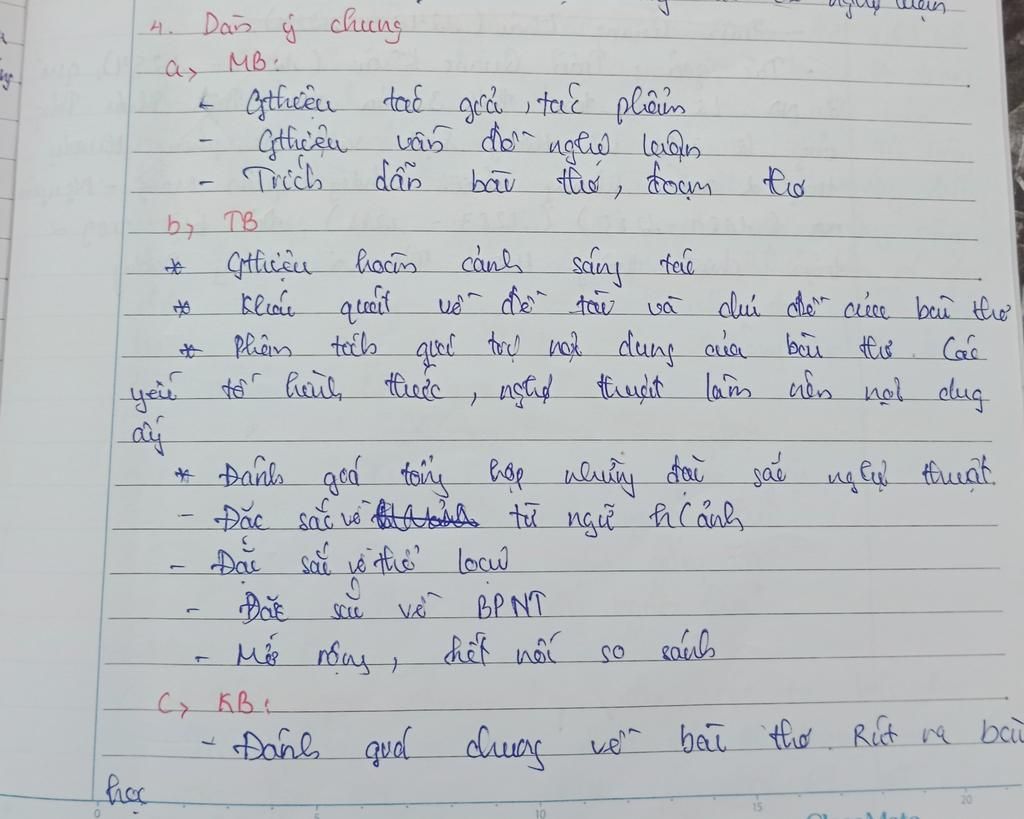 nghị luận
4. Dàn ý chung
a, MB:
- Gthiệu tác giả, tác phẩm
- Gthiệu vấn đề nghị luận
- Trích dẫn bài thơ, đoạn thơ
b, TB
* Gthiệu hoàn cảnh sáng tác
* Khái quát về đề tài và chủ đề của bài thơ
* Phân tích giá trị nội dung của bài thơ. Các
yếu tố hình thức, nghệ thuật làm nên nội dug
ấy
* Đánh giá tổng hợp những đặc sắc nghệ thuật.
- Đặc sắc về từ ngữ h/ảnh
- Đặc sắc về thể loại
- Đặc sắc về BPNT
- Mở rộng, kết nối so sánh
c, KB:
- Đánh giá chung về bài thơ. Rút ra bài
học
0 5 10 15 20